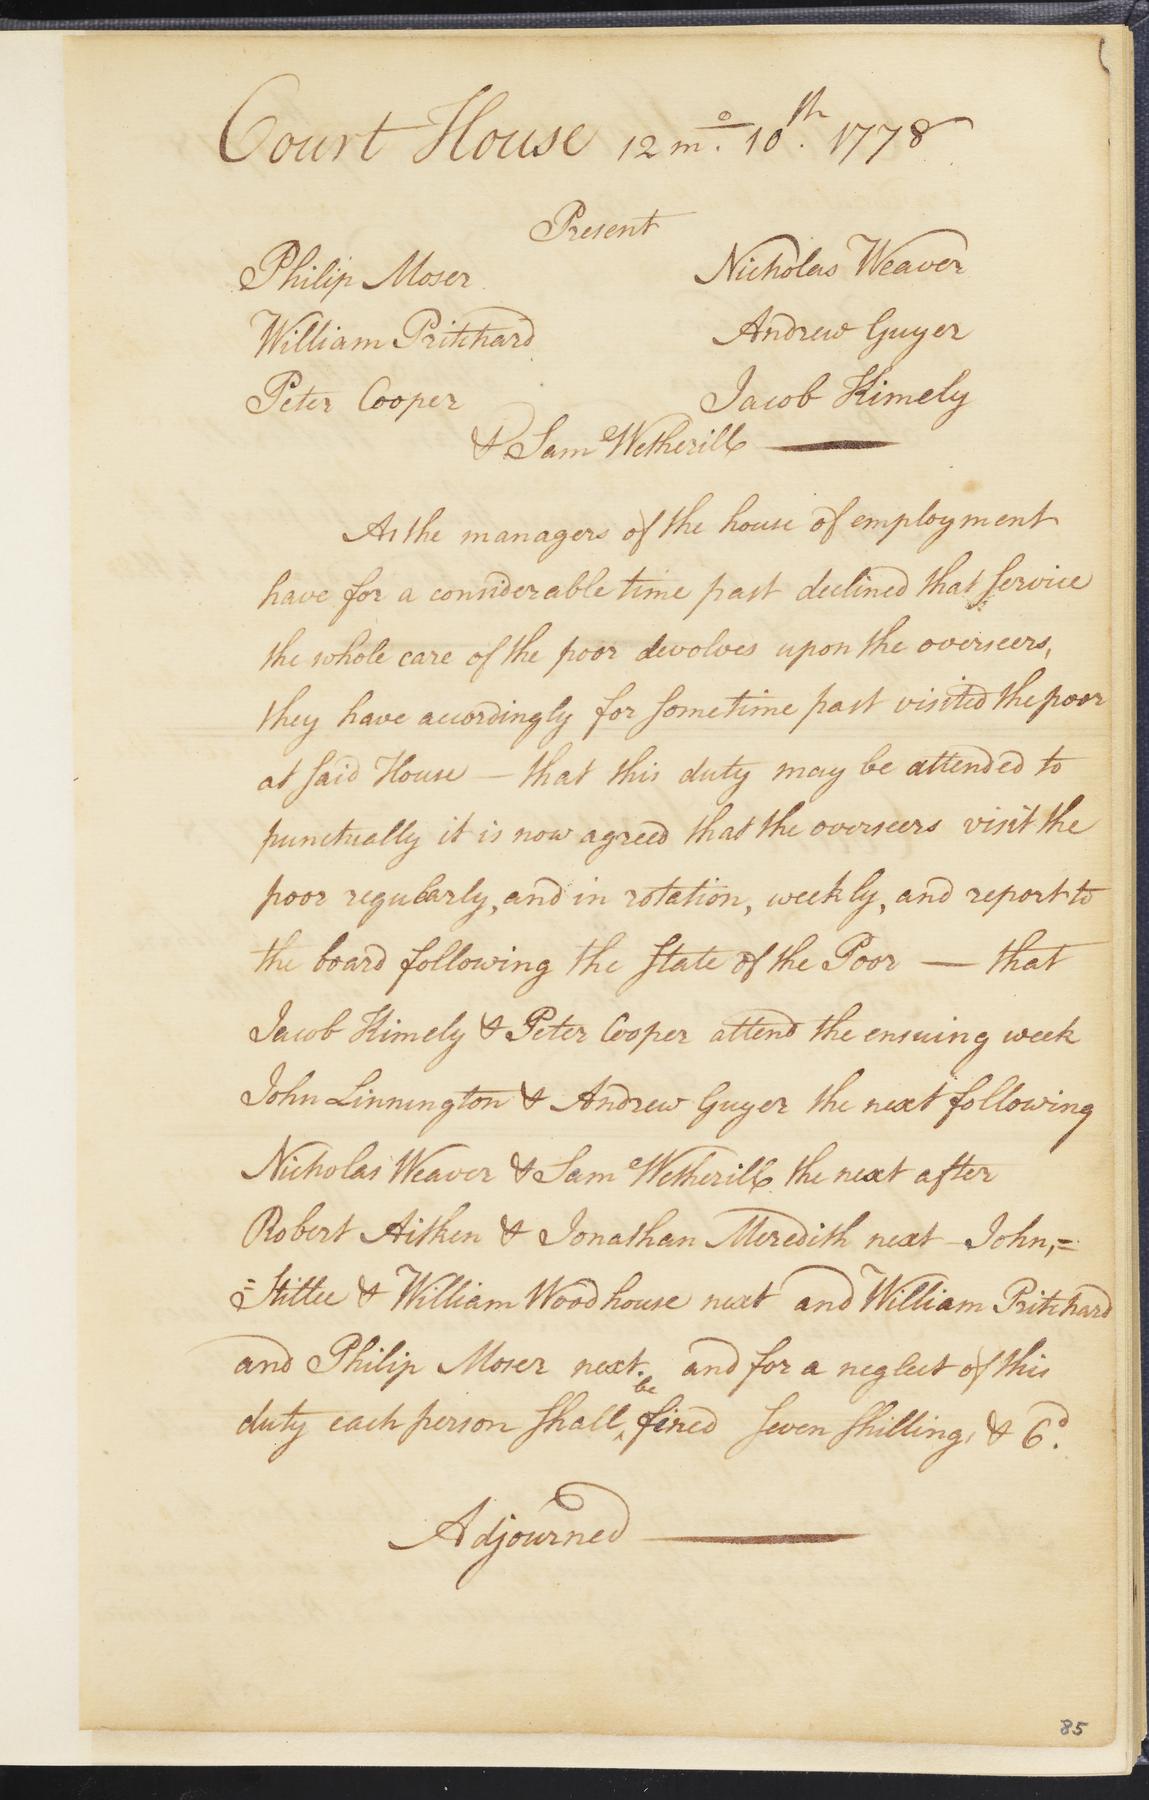 Court House 12 mo. 10th. 1778
Present
Philip Moser Nicholas Weaver
William Pritchard Andrew Guyer
Peter Cooper Jacob Kimely
& Sam Wetherill —
As the managers of the house of employment
have for a considerable time past declined that service
the whole care of the poor devolves upon the overseers,
they have accordingly for sometime past visited the poor
at said House — that this duty may be attended to
punctually it is now agreed that the overseers visit the
poor regularly, and in rotation, weekly, and report to
the board following the State of the Poor — that
Jacob Kimely & Peter Cooper attend the ensuing week
John Linnington & Andrew Guyer the next following
Nicholas Weaver & Sam Wetherill the next after
Robert Aitken & Jonathan Meredith next John,=
=Stille & William Woodhouse next and William Pritchard
and Philip Moser next. and for a neglect of this
duty each person shall ^be fined seven shillings & 6d.
Adjourned —
85